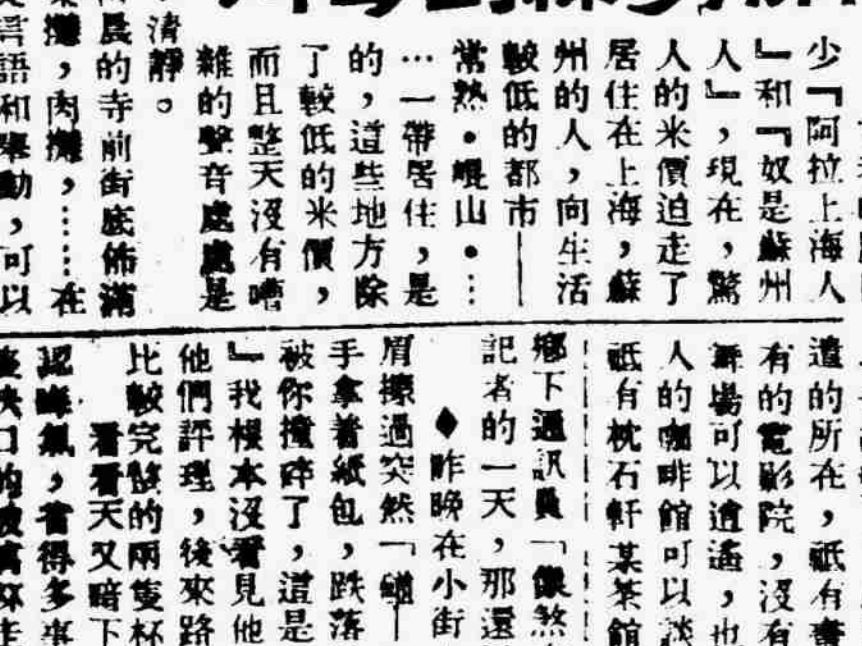 少『阿拉上海人
』和『奴是蘇州
人』,現在,驚
人的米價迫走了
居住在上海,蘇
州的人,向生活
較低的都市——
常熟・崐山・…
…一帶居住,是
的,這些地方除
了較低的米價,
而且整天沒有嘈
雜的聲音處處是
清靜。
晨的寺前街底佈滿
攤,肉攤,……在
言語和舉動,可以
遣的所在,祇有書
有的電影院,沒有
舞場可以逍遙,也
人的咖啡館可以談
祇有枕石軒某茶館
鄉下通訊員「像煞
記者的一天,那還
◆昨晚在小街
眉擦過突然「
手拿着紙包,跌落
被你撞碎了,這是
』我根本沒看見他
他們評理,後來路
比較完整的兩隻杯
看看天又暗下
認晦氣,省得多事